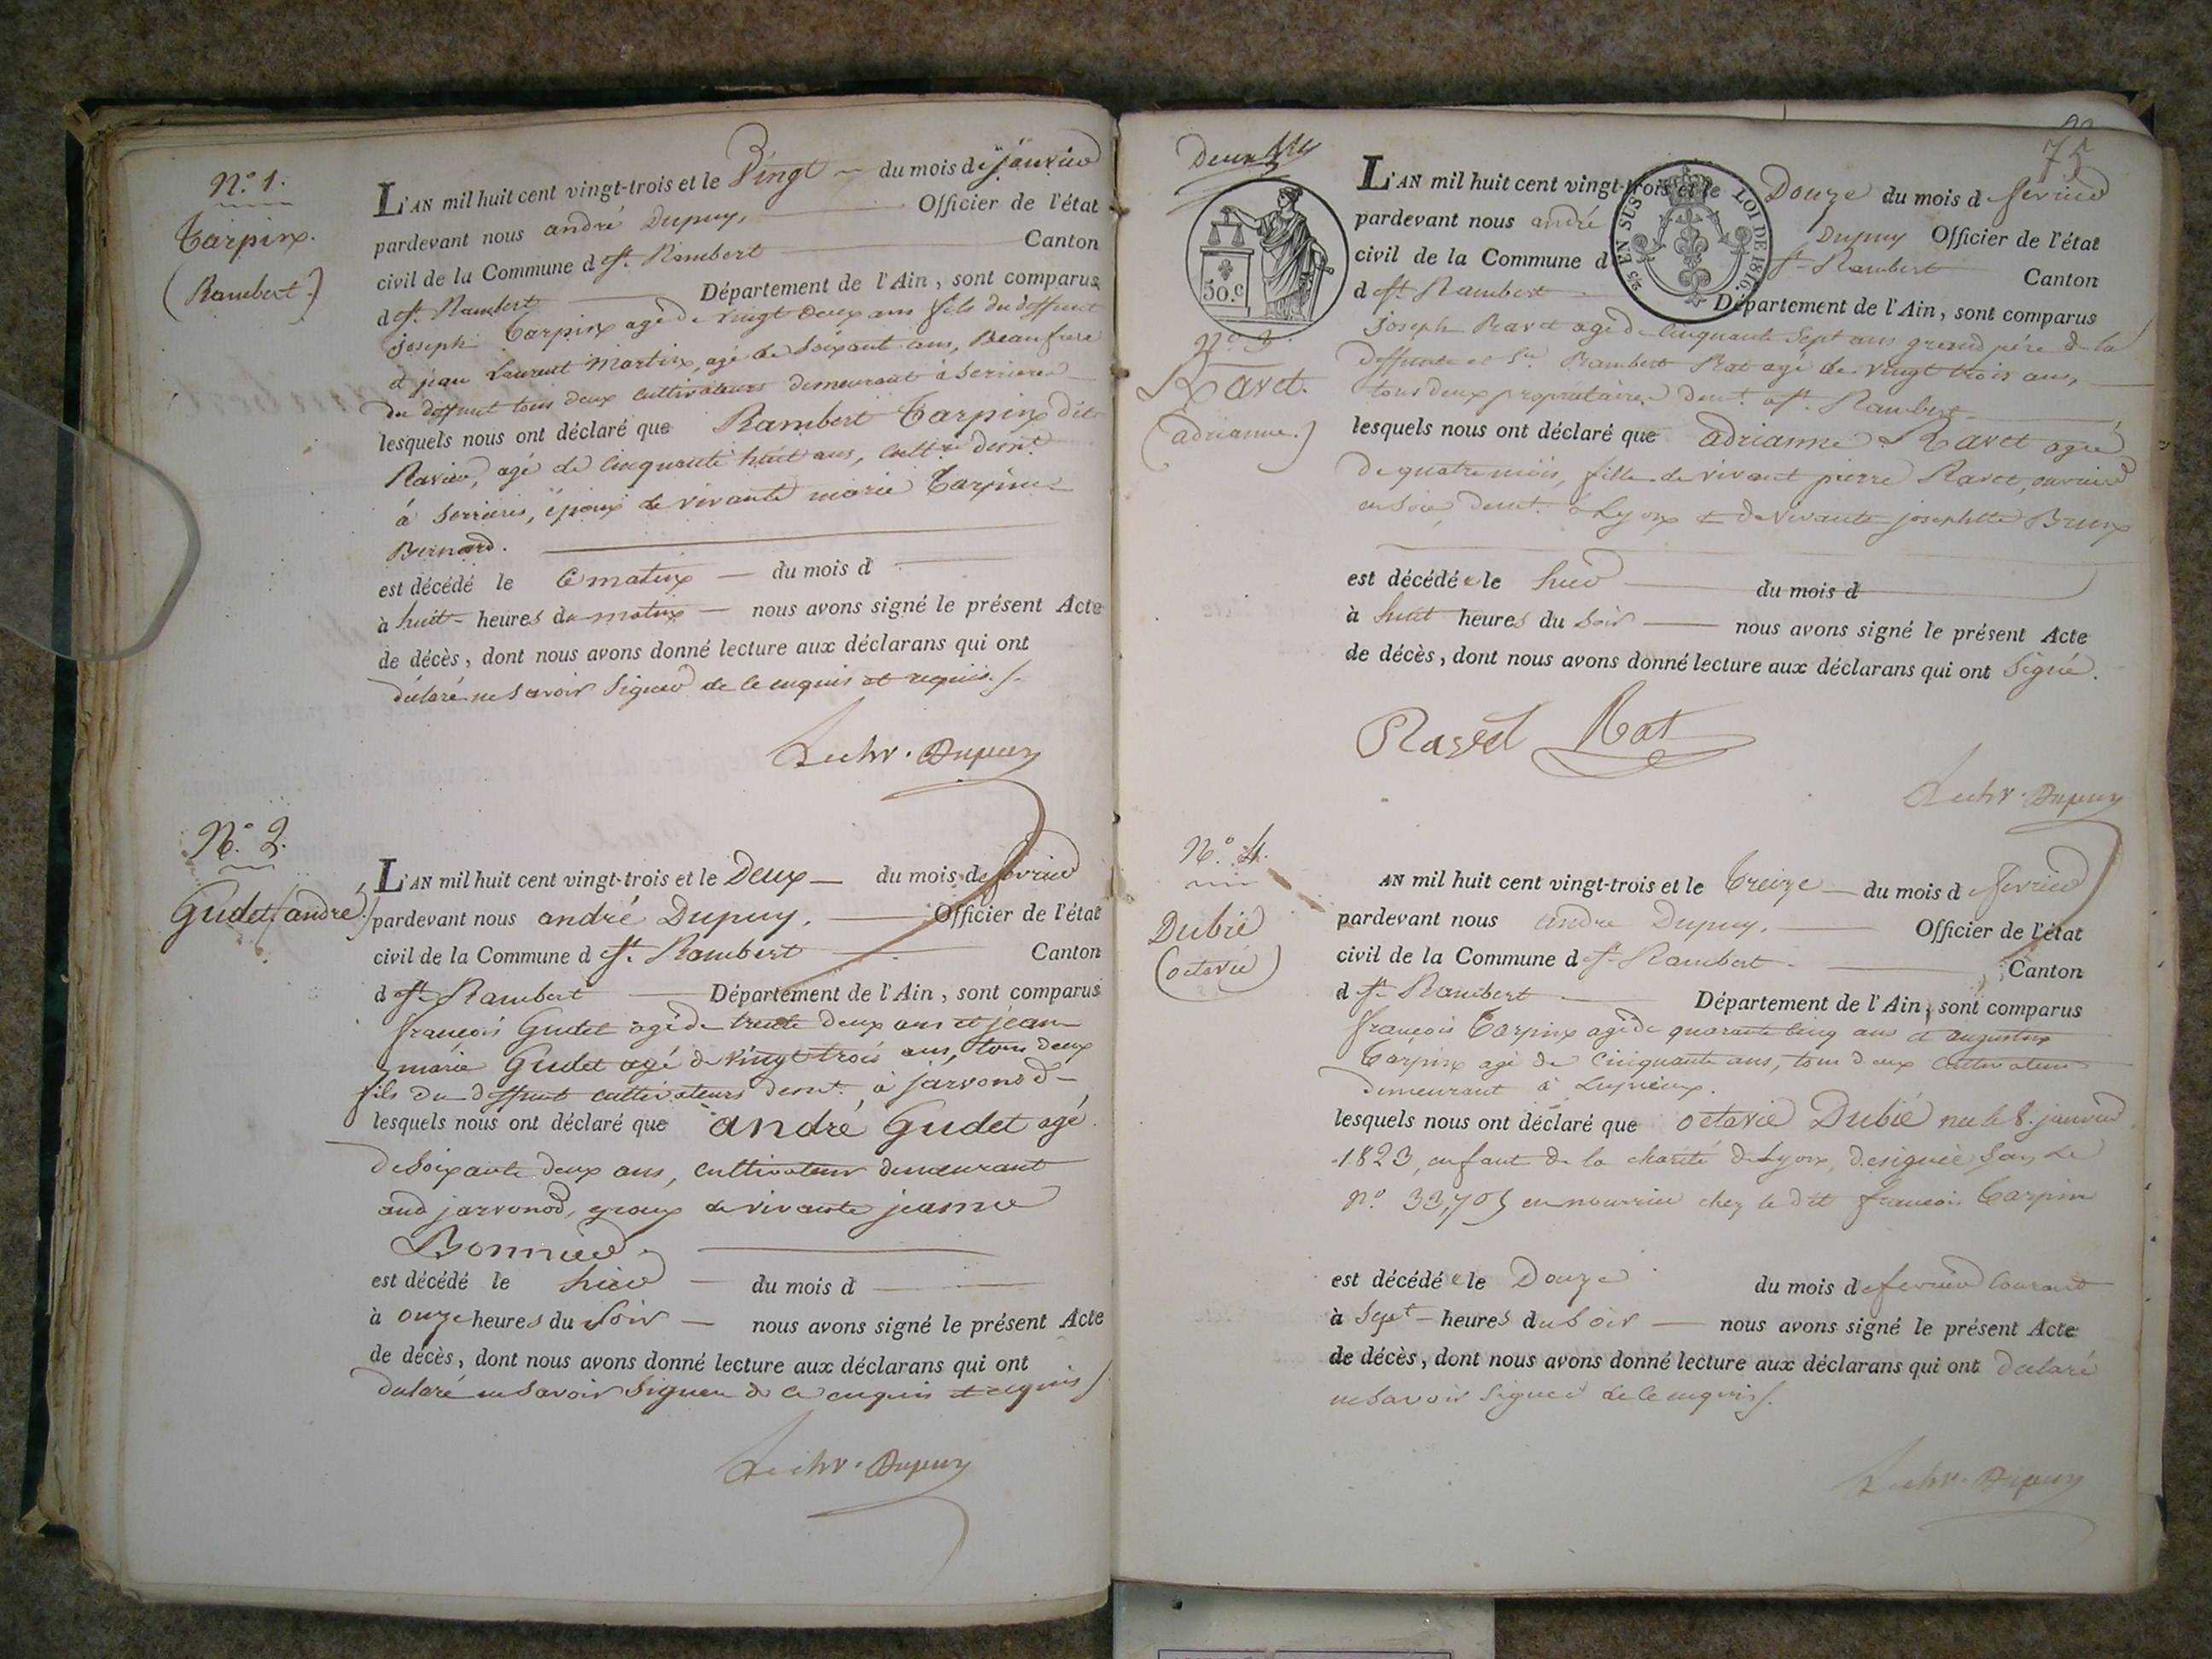 N.° 1.
Carpin.
(Rambert.)
L'AN mil huit cent vingt-trois et le Vingt — du mois de janvier
pardevant nous andré Dupuy, Officier de l'état
civil de la Commune d St. Rambert Canton
d St. Rambert Département de l'Ain, sont comparus
joseph Carpin agé de vingt deux ans fils du deffunt
et jean Laurent Martin, agé de Soixante ans, Beaufrere
du deffunt tous deux cultivateurs demeurant à Serrieres
lesquels nous ont déclaré que Rambert Carpin dit
Ravier, agé de cinquante huit ans, cult.r demt.
à Serrieres, époux de vivante marie Carpin
Bernard.
est décédé le Ce matin — du mois d
à huit heures du matin — nous avons signé le présent Acte
de décès, dont nous avons donné lecture aux déclarans qui ont
déclaré ne Savoir Signer de ce enquis et requis.
Dupuy
N.° 2.
Gudet (andré.)
L'AN mil huit cent vingt-trois et le Deux — du mois de fevrier
pardevant nous andré Dupuy, Officier de l'état
civil de la Commune d St. Rambert Canton
d St. Rambert Département de l'Ain, sont comparus
françois Gudet agé de trente deux ans et jean
marie Gudet agé de vingt trois ans, tous deux
fils du deffunt cultivateurs demt. à jarvonod
lesquels nous ont déclaré que andré Gudet agé
de Soixante deux ans, cultivateur demeurant
aud jarvonod, epoux de vivante jeanne
Bonnier.
est décédé le hier — du mois d
à onze heures du Soir — nous avons signé le présent Acte
de décès, dont nous avons donné lecture aux déclarans qui ont
declaré ne Savoir Signer de ce enquis et requis
Dupuy
75
50.c
25 EN SUS LOI DE 1816.
N.° 3.
Ravet.
(adrianne.)
L'AN mil huit cent vingt-trois et le Douze du mois d fevrier
pardevant nous andré Dupuy Officier de l'état
civil de la Commune d St. Rambert Canton
d St. Rambert Département de l'Ain, sont comparus
joseph Ravet agé de cinquante Sept ans grand pére de la
deffunte et Sr. Rambert Rat agé de vingt trois ans,
tous deux propriétaires demt. a St. Rambert
lesquels nous ont déclaré que adrianne Ravet agée
de quatre mois, fille de vivant pierre Ravet, ouvrier
en Soie, demt. à Lyon et de vivante josephtte Brun
est décédée le hier du mois d
à huit heures du Soir — nous avons signé le présent Acte
de décès, dont nous avons donné lecture aux déclarans qui ont Signé.
Ravet Rat
Dupuy
N.° 4.
Dubié
(octavie)
AN mil huit cent vingt-trois et le treize — du mois d fevrier
pardevant nous andre Dupuy. Officier de l'état
civil de la Commune d St. Rambert Canton
d St. Rambert Département de l'Ain, sont comparus
françois Carpin agé de quarante cinq ans et augustin
Carpin agé de Cinquante ans, tous deux cultivateurs
demeurant à
lesquels nous ont déclaré que octavie Dubié née le 8. janvier
1823, enfant de la charité de Lyon, designée Sous le
n.° 33,705 en nourrice chez le dit francois Carpin
est décédée le Douze du mois de fevrier Courant
à Sept heures du Soir — nous avons signé le présent Acte
de décès, dont nous avons donné lecture aux déclarans qui ont declaré
ne Savoir Signer de ce enquis.
Dupuy